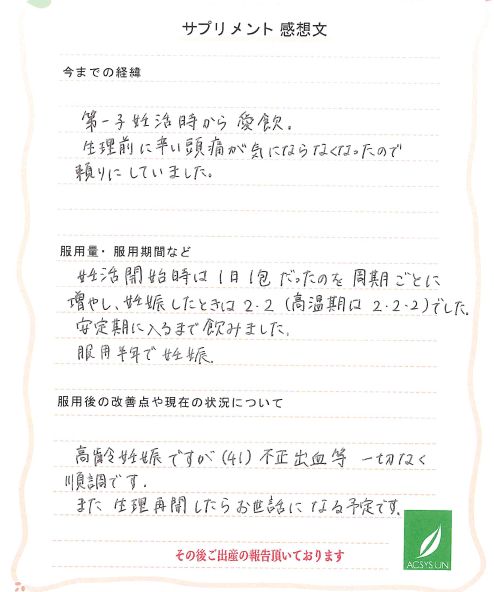 サプリメント 感想文
今までの経緯
第一子妊活時から愛飲。
生理前に辛い頭痛が気にならなくなったので
頼りにしていました。
服用量・服用期間など
妊活開始時は1日1包だったのを周期ごとに
増やし、妊娠したときは2・2(高温期は2・2・2)でした。
安定期に入るまで飲みました。
服用半年で妊娠.
服用後の改善点や現在の状況について
高齢妊娠ですが(41)不正出血等 一切なく
順調です.
また生理再開したらお世話になる予定です.
その後ご出産の報告頂いております
ACSYS UN